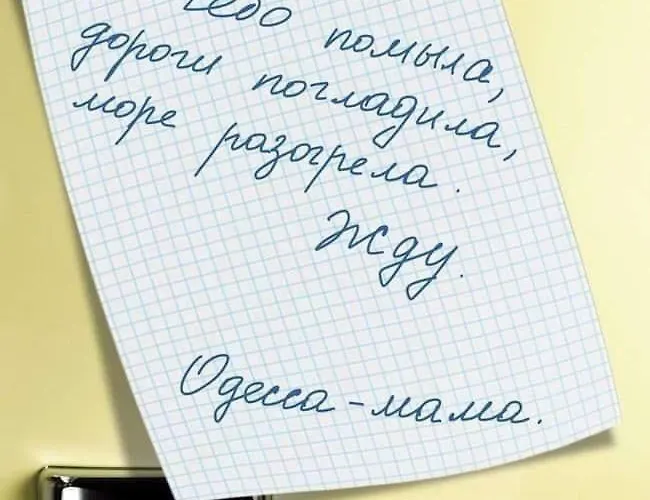 небо помыла,
дороги погладила,
море разогрела.
Жду.
Одесса-мама.